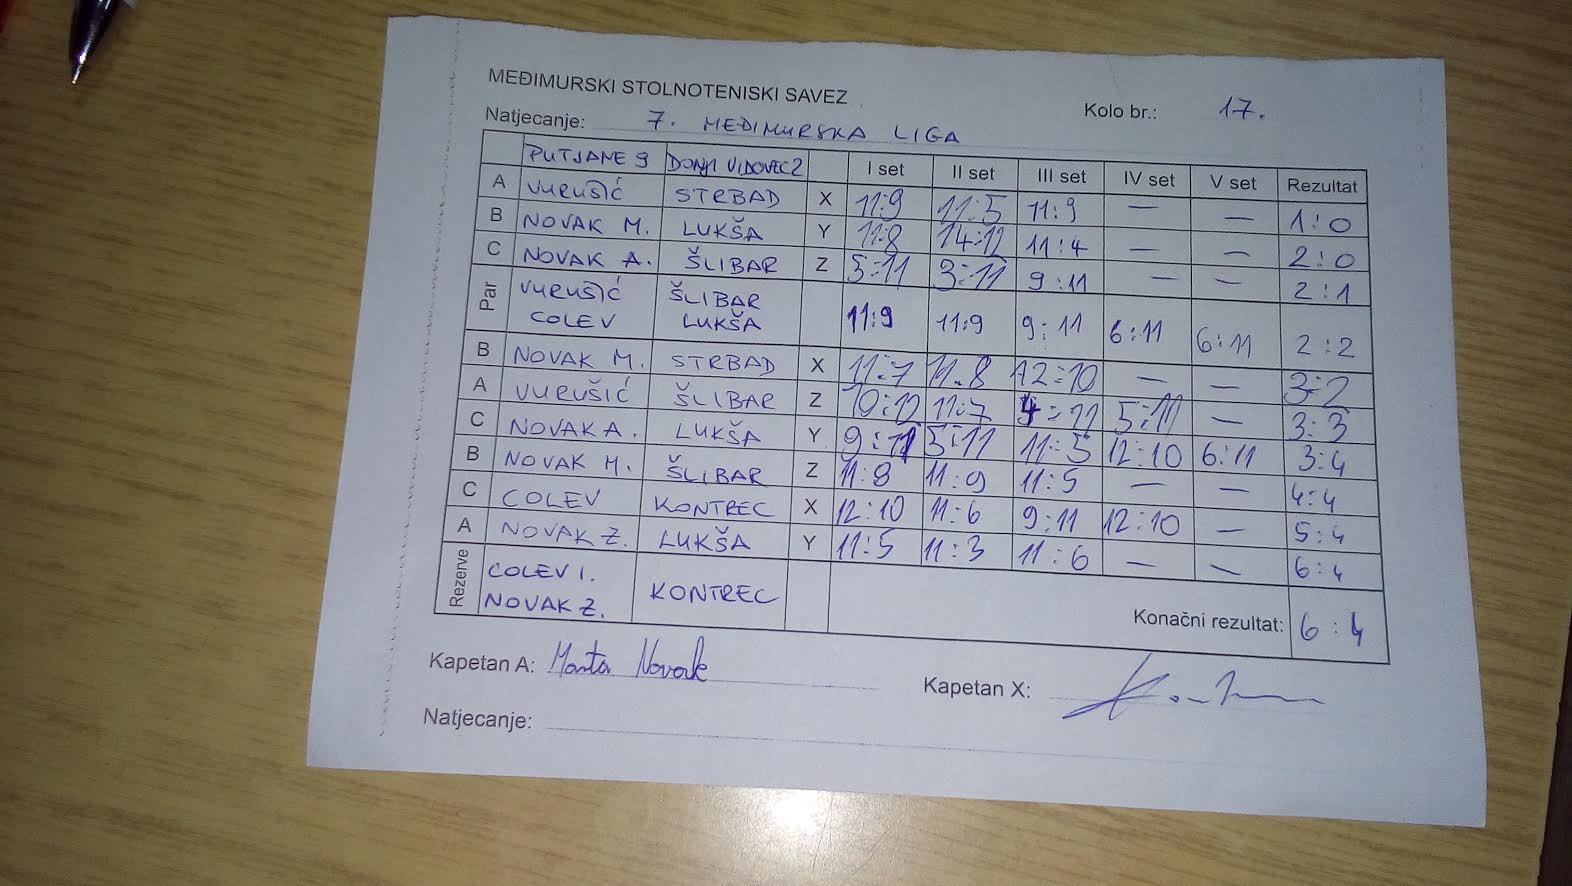 MEĐIMURSKI STOLNOTENISKI SAVEZ
Kolo br.: 17.
Natjecanje: 7. MEĐIMURSKA LIGA
PUTJANE 9 DONJI VIDOVEC 2 I set II set III set IV set V set Rezultat
A VURUŠIĆ STRBAD X 11:9 11:5 11:9 — — 1:0
B NOVAK M. LUKŠA Y 11:8 14:12 11:4 — — 2:0
C NOVAK A. ŠLIBAR Z 5:11 3:11 9:11 — — 2:1
Par VURUŠIĆ ŠLIBAR
COLEV LUKŠA 11:9 11:9 9:11 6:11 6:11 2:2
B NOVAK M. STRBAD X 11:7 11:8 12:10 — — 3:2
A VURUŠIĆ ŠLIBAR Z 10:12 11:7 :11 5:11 — 3:3
C NOVAK A. LUKŠA Y 9:11 5:11 11:5 12:10 6:11 3:4
B NOVAK M. ŠLIBAR Z 11:8 11:9 11:5 — — 4:4
C COLEV KONTREC X 12:10 11:6 9:11 12:10 — 5:4
A NOVAK Z. LUKŠA Y 11:5 11:3 11:6 — — 6:4
Rezerve COLEV I. KONTREC
NOVAK Z.
Konačni rezultat: 6:4
Kapetan A: Marta Novak
Kapetan X:
Natjecanje: